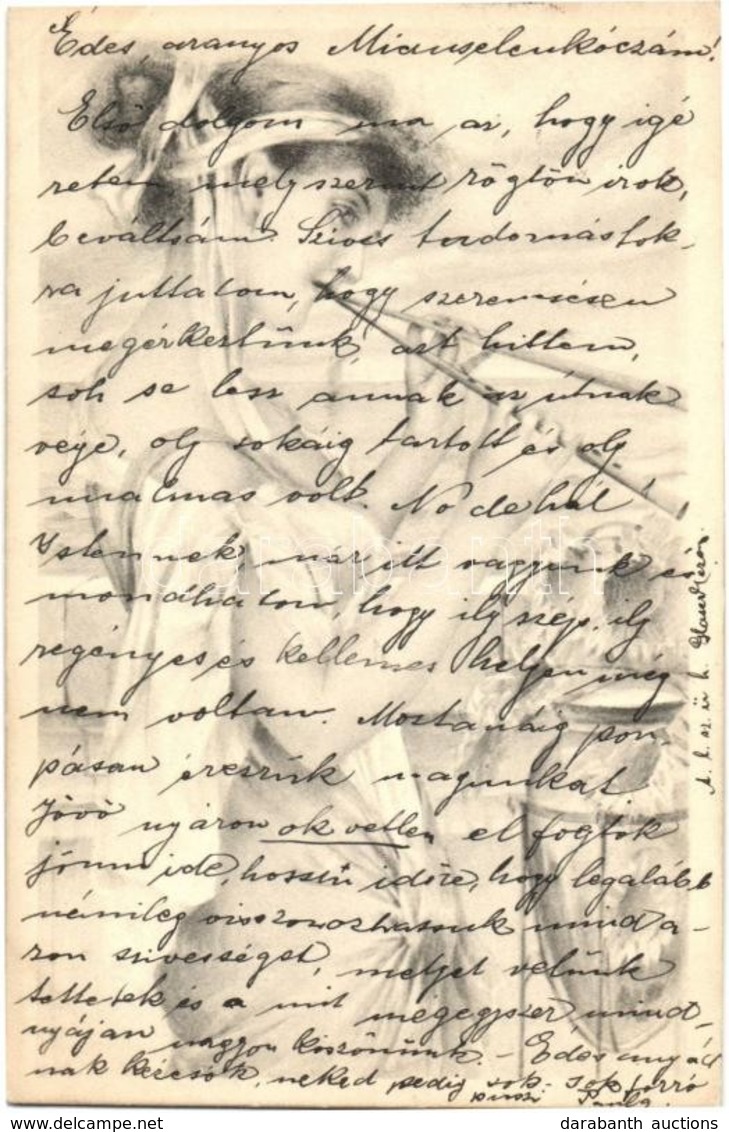 Édes, aranyos Mianselenkóczám!
Első dolgom ma az, hogy igé
retem melyszerint rögtön irok,
beváltsám. Szives tudomástok,
ra juttatom, hogy szerencsésen
megérkeztünk, azt hittem,
soh se lesz annak az útnak
vége, oly sokáig tartott és oly
unalmas volt. No de hál'
Istennek, már itt vagyunk és
mondhatom, hogy ily szép, ily
regényes és kellemes helyen még
nem voltam. Mostanáig pom-
pásan érezzük magunkat
Jövő nyáron okvetlen el fogtok
jönni ide, hosszú időre, hogy legalább
némileg viszonozhassuk mind a-
zon szivességet, melyet velünk
tettetek és a mit mégegyszer mind-
nyájan nagyon köszönünk. - Édes anyád
nak kézcsók, neked pedig sok-sok forró
puszi Paula.
darabanth
© darabanth auctions
www.darabanth.com